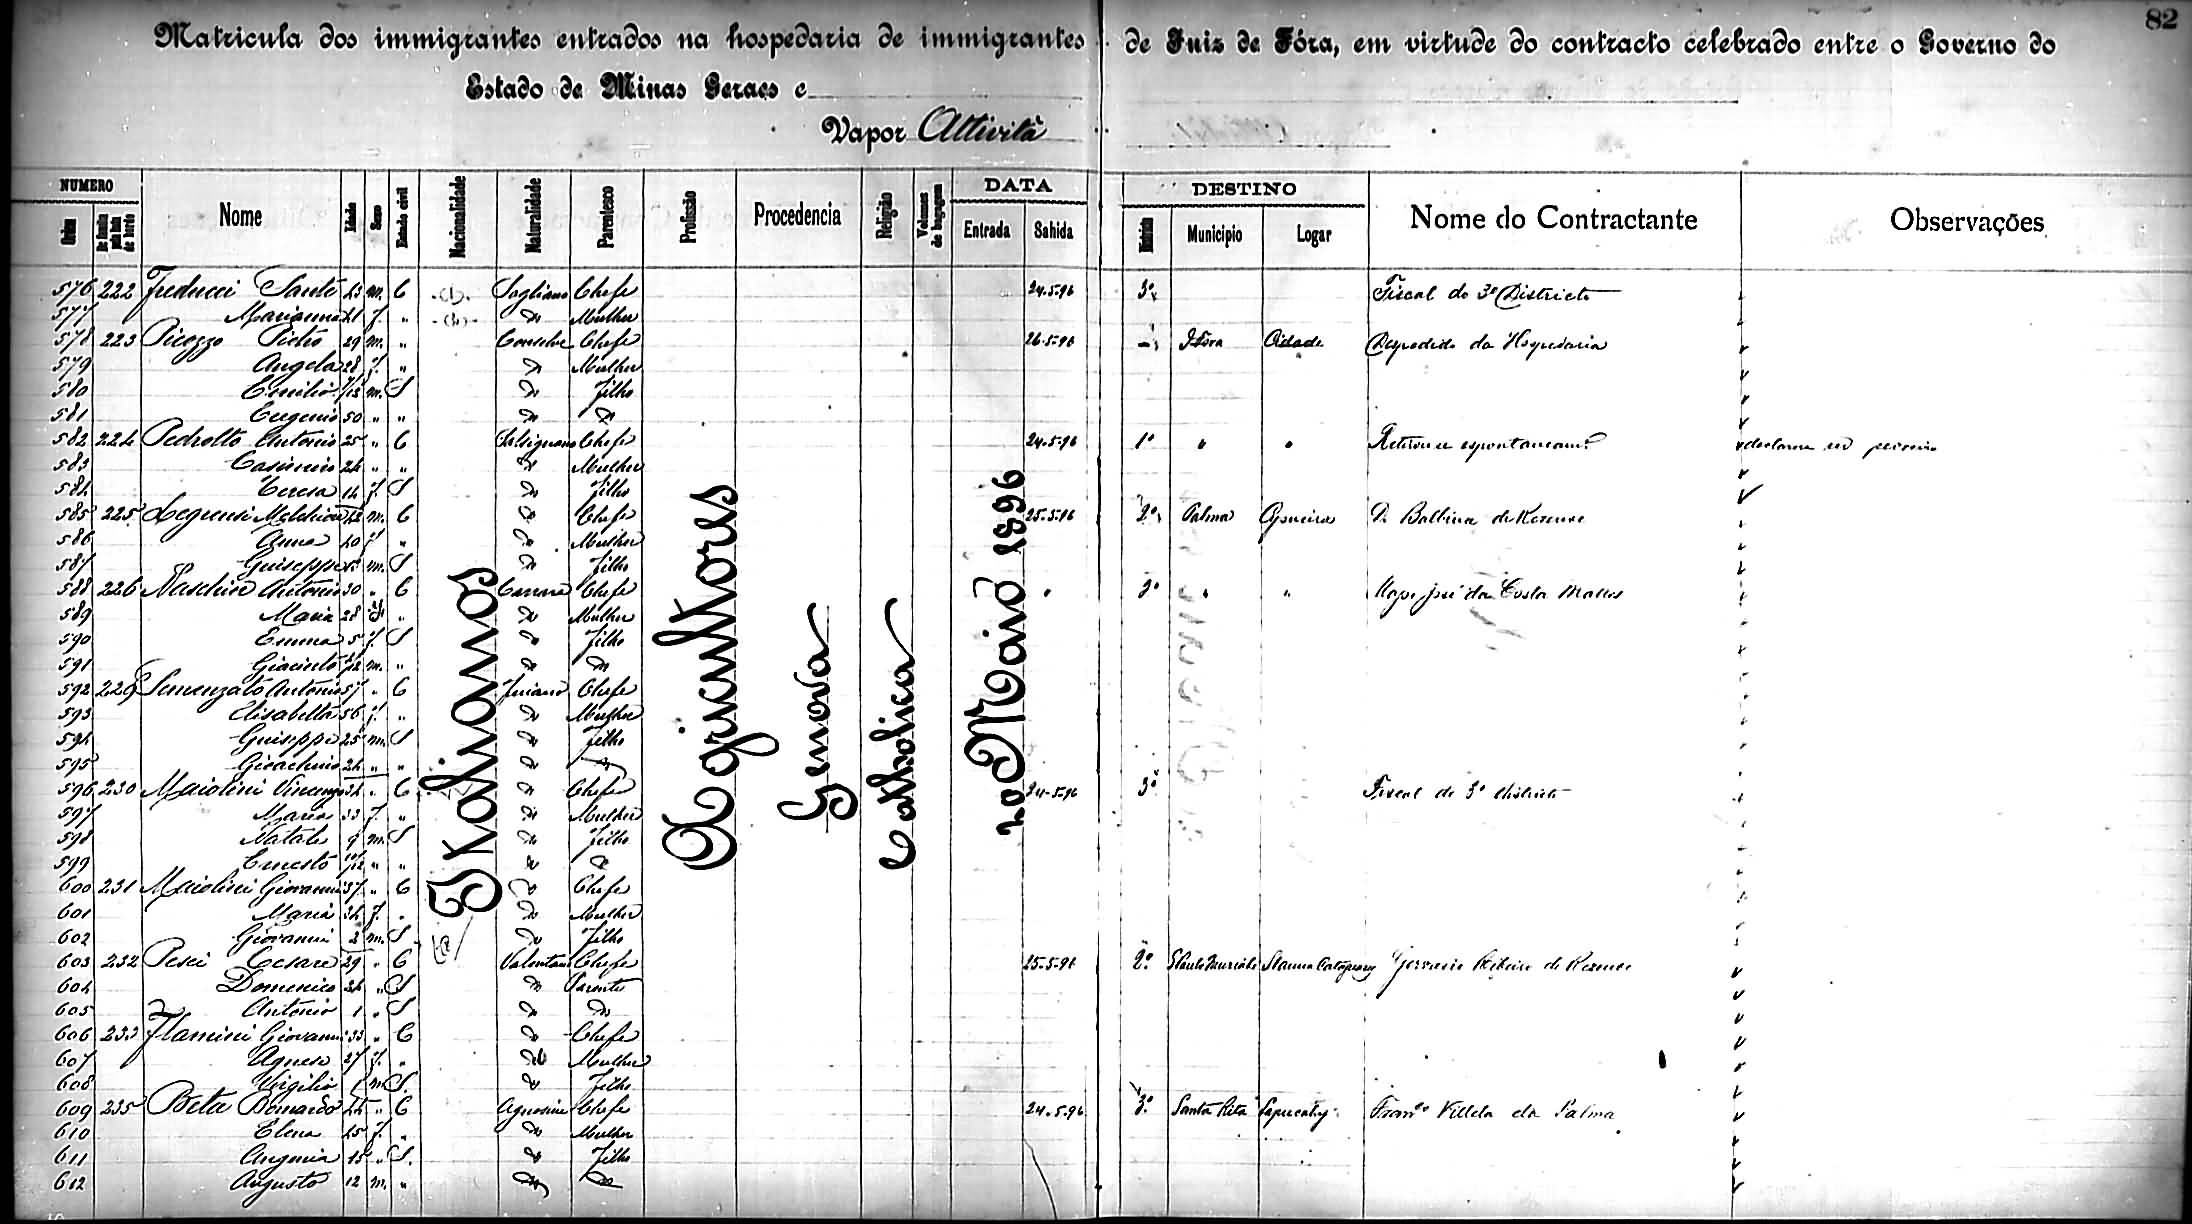 82
Matricula dos immigrantes entrados na hospedaria de immigrantes de Juiz de Fóra, em virtude do contracto celebrado entre o Governo do
Estado de Minas Geraes e
Vapor Attività
NUMERO Nome Idade Sexo Estado civil Nacionalidade Naturalidade Parentesco Profissão Procedencia Religião Volumes de bagagem DATA DESTINO Nome do Contractante Observações
Ordem Entrada Sahida Districto Municipio Logar
Italianos
Agricultores
Genova
Catholica
20 Maio 1896
576 222 Freducci Santo 23 m. C Sogliano Chefe 24.5.96 3º Fiscal do 3º Districto
577 Marianna 21 f. " Do Mulher
578 223 Picozzo Pietro 29 m. " Conselve Chefe 26.5.96 J Fóra Cidade Despedido da Hospedaria
579 Angela 28 f. " Do Mulher
580 Emilio m. S Do filho
581 Eugenio 50 " " Do Do
582 224 Pedrotto Antonio 25 " C Chefe 24.5.96 1º " " Retirou-se espontaneamte declarou ser
583 Casimiro 24 " " Do Mulher
584 Teresa 14 f. S Do filho
585 225 Melchior 42 m. C Do Chefe 25.5.96 2º Palma Cysneiro D. Balbina de Rezende
586 Anna 40 f. " Do Mulher
587 Guiseppe m. S Do filho
588 226 Antonio 30 " C Carrara Chefe " 2º " " José da Costa Mattos
589 Maria 28 f. " Do Mulher
590 Emma 5 f. S Do filho
591 Giacinto m. " Do Do
592 229 Semenzato Antonio 57 " C Chefe
593 Elisabetta 56 f. " Do Mulher
594 Guiseppe 25 m. S Do filho
595 Gioachino 24 " " Do Do
596 230 Maiolini Vincenzo 34 " C Do Chefe 24-5-96 3º Fiscal do 3º districto
597 Maria 33 f. " Do Mulher
598 Natale 9 m. S Do filho
599 Ernesto 10/12 " " Do Do
600 231 Maiolini Giovanni 37 " C Do Chefe
601 Maria 34 f. " Do Mulher
602 Giovanni 2 m. S Do filho
603 232 Pesci Cesare 29 " C Valentano Chefe 25-5-96 2º S Paulo Muriahé Gervasio Ribeiro de Rezende
604 Domenico 24 " S Do Parente
605 Antonio 1 " S Do Do
606 233 Flamini Giovanni 33 " C Do Chefe
607 Agnese 27 f. " Do Mulher
608 Virgilio 1 m S. Do filho
609 235 Beta Bernardo " C Agnosine Chefe 24.5.96 3º Santa Rita Sapucahy Franco Villela da Palma
610 Elena 45 f. " Do Mulher
611 15 " S. Do filho
612 Augusto 12 m. " Do Do